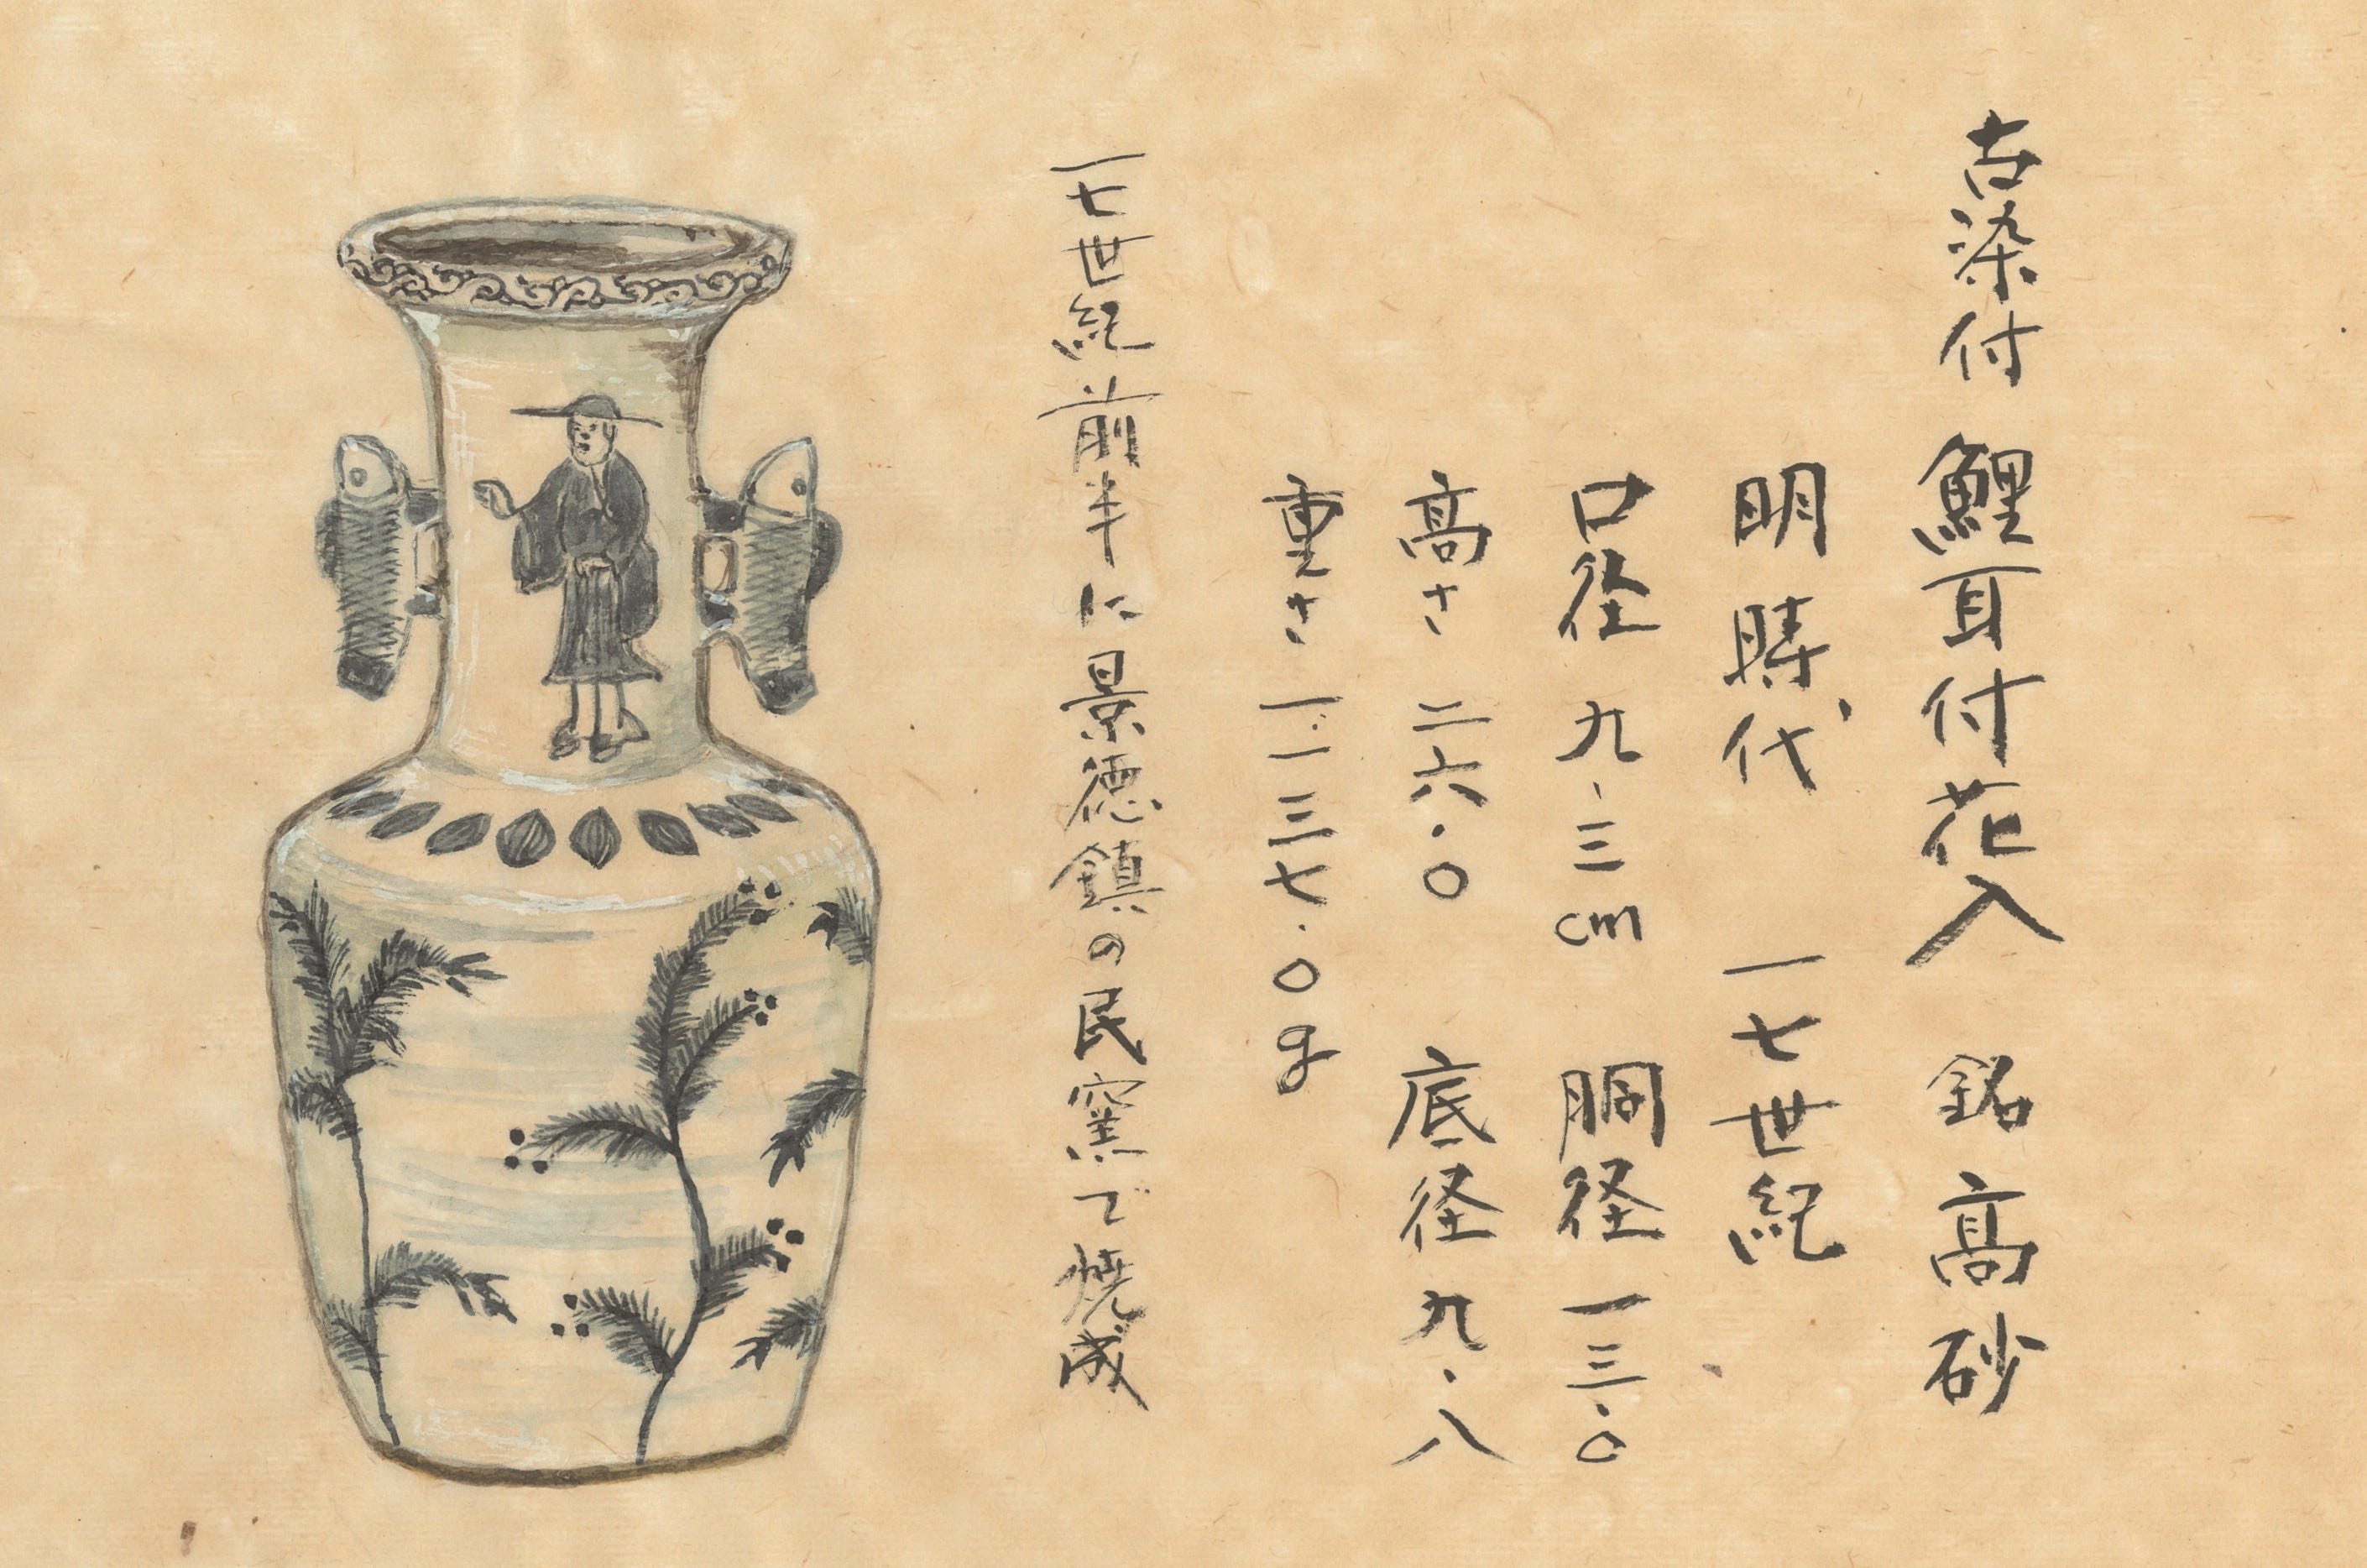 古染付 鯉耳付花入 銘 高砂
明時代 一七世紀
口径 九・三cm 胴径 一三・〇
高さ 二六・〇 底径 九・八
重さ 一、一三七・〇g
一七世紀前半に景徳鎮の民窯で焼成